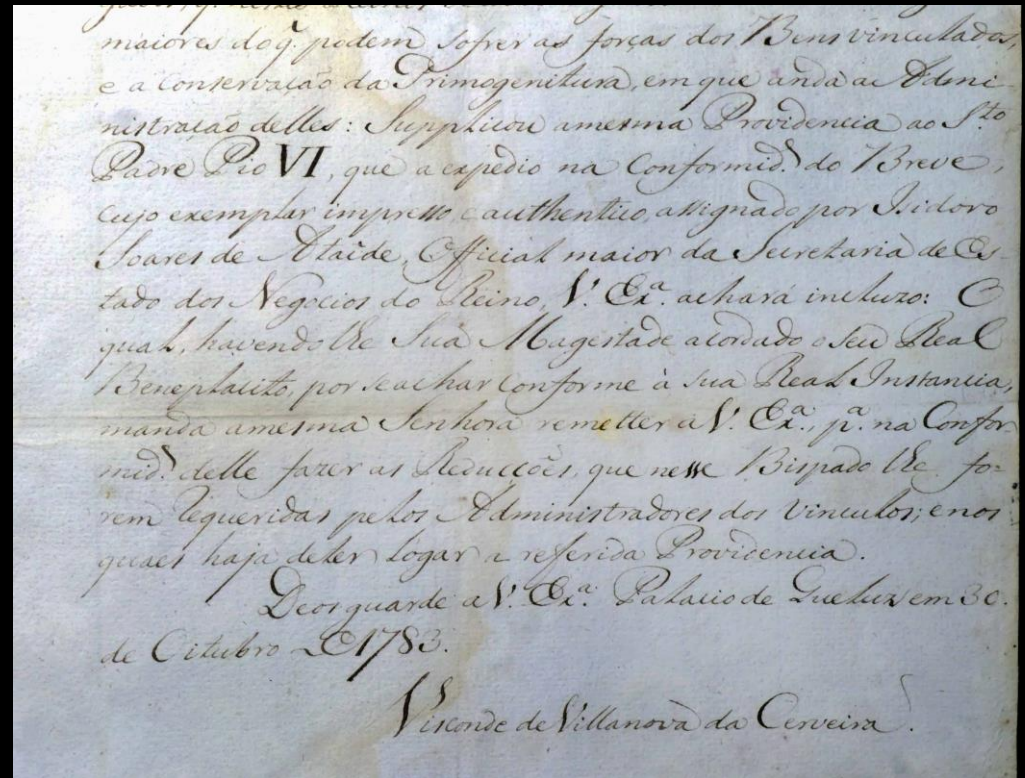 maiores do q̃. podem sofrer as forças dos Bens vinculados,
e a Conservação da Primogenitura, em que anda a Admi-
nistração delles: Supplicou amesma Providencia ao S.to
Padre Pio VI, que a expedio na Conformid.e do Breve,
cujo exemplar impresso e authentico, assignado por Isidoro
Soares de Ataíde, Official maior da Secretaria de Es-
tado dos Negocios do Reino, V. Ex.a achará incluzo: O
qual, havendo lhe Sua Magestade acordado o seu Real
Beneplacito, por se achar Conforme à sua Real Instancia,
manda amesma Senhora remetter a V. Ex.a, p.a na Confor-
mid.e delle fazer as Reducções, que nesse Bispado lhe fo-
rem requeridas pelos Administradores dos Vinculos; e nos
quaes haja de ter logar a referida Providencia.
Deos guarde a V. Ex.a Palacio de Queluz em 30.
de Oitubro de 1783.
Visconde de Villanova da Cerveira.